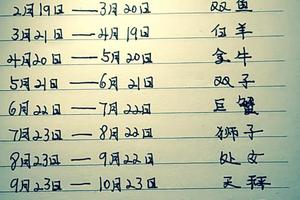 2月19日 — 3月20日 双鱼
3月21日 — 4月19日 白羊
4月20日 — 5月20日 金牛
5月21日 — 6月21日 双子
6月22日 — 7月22日 巨蟹
7月23日 — 8月22日 狮子
8月23日 — 9月22日 处女
9月23日 — 10月23日 天秤